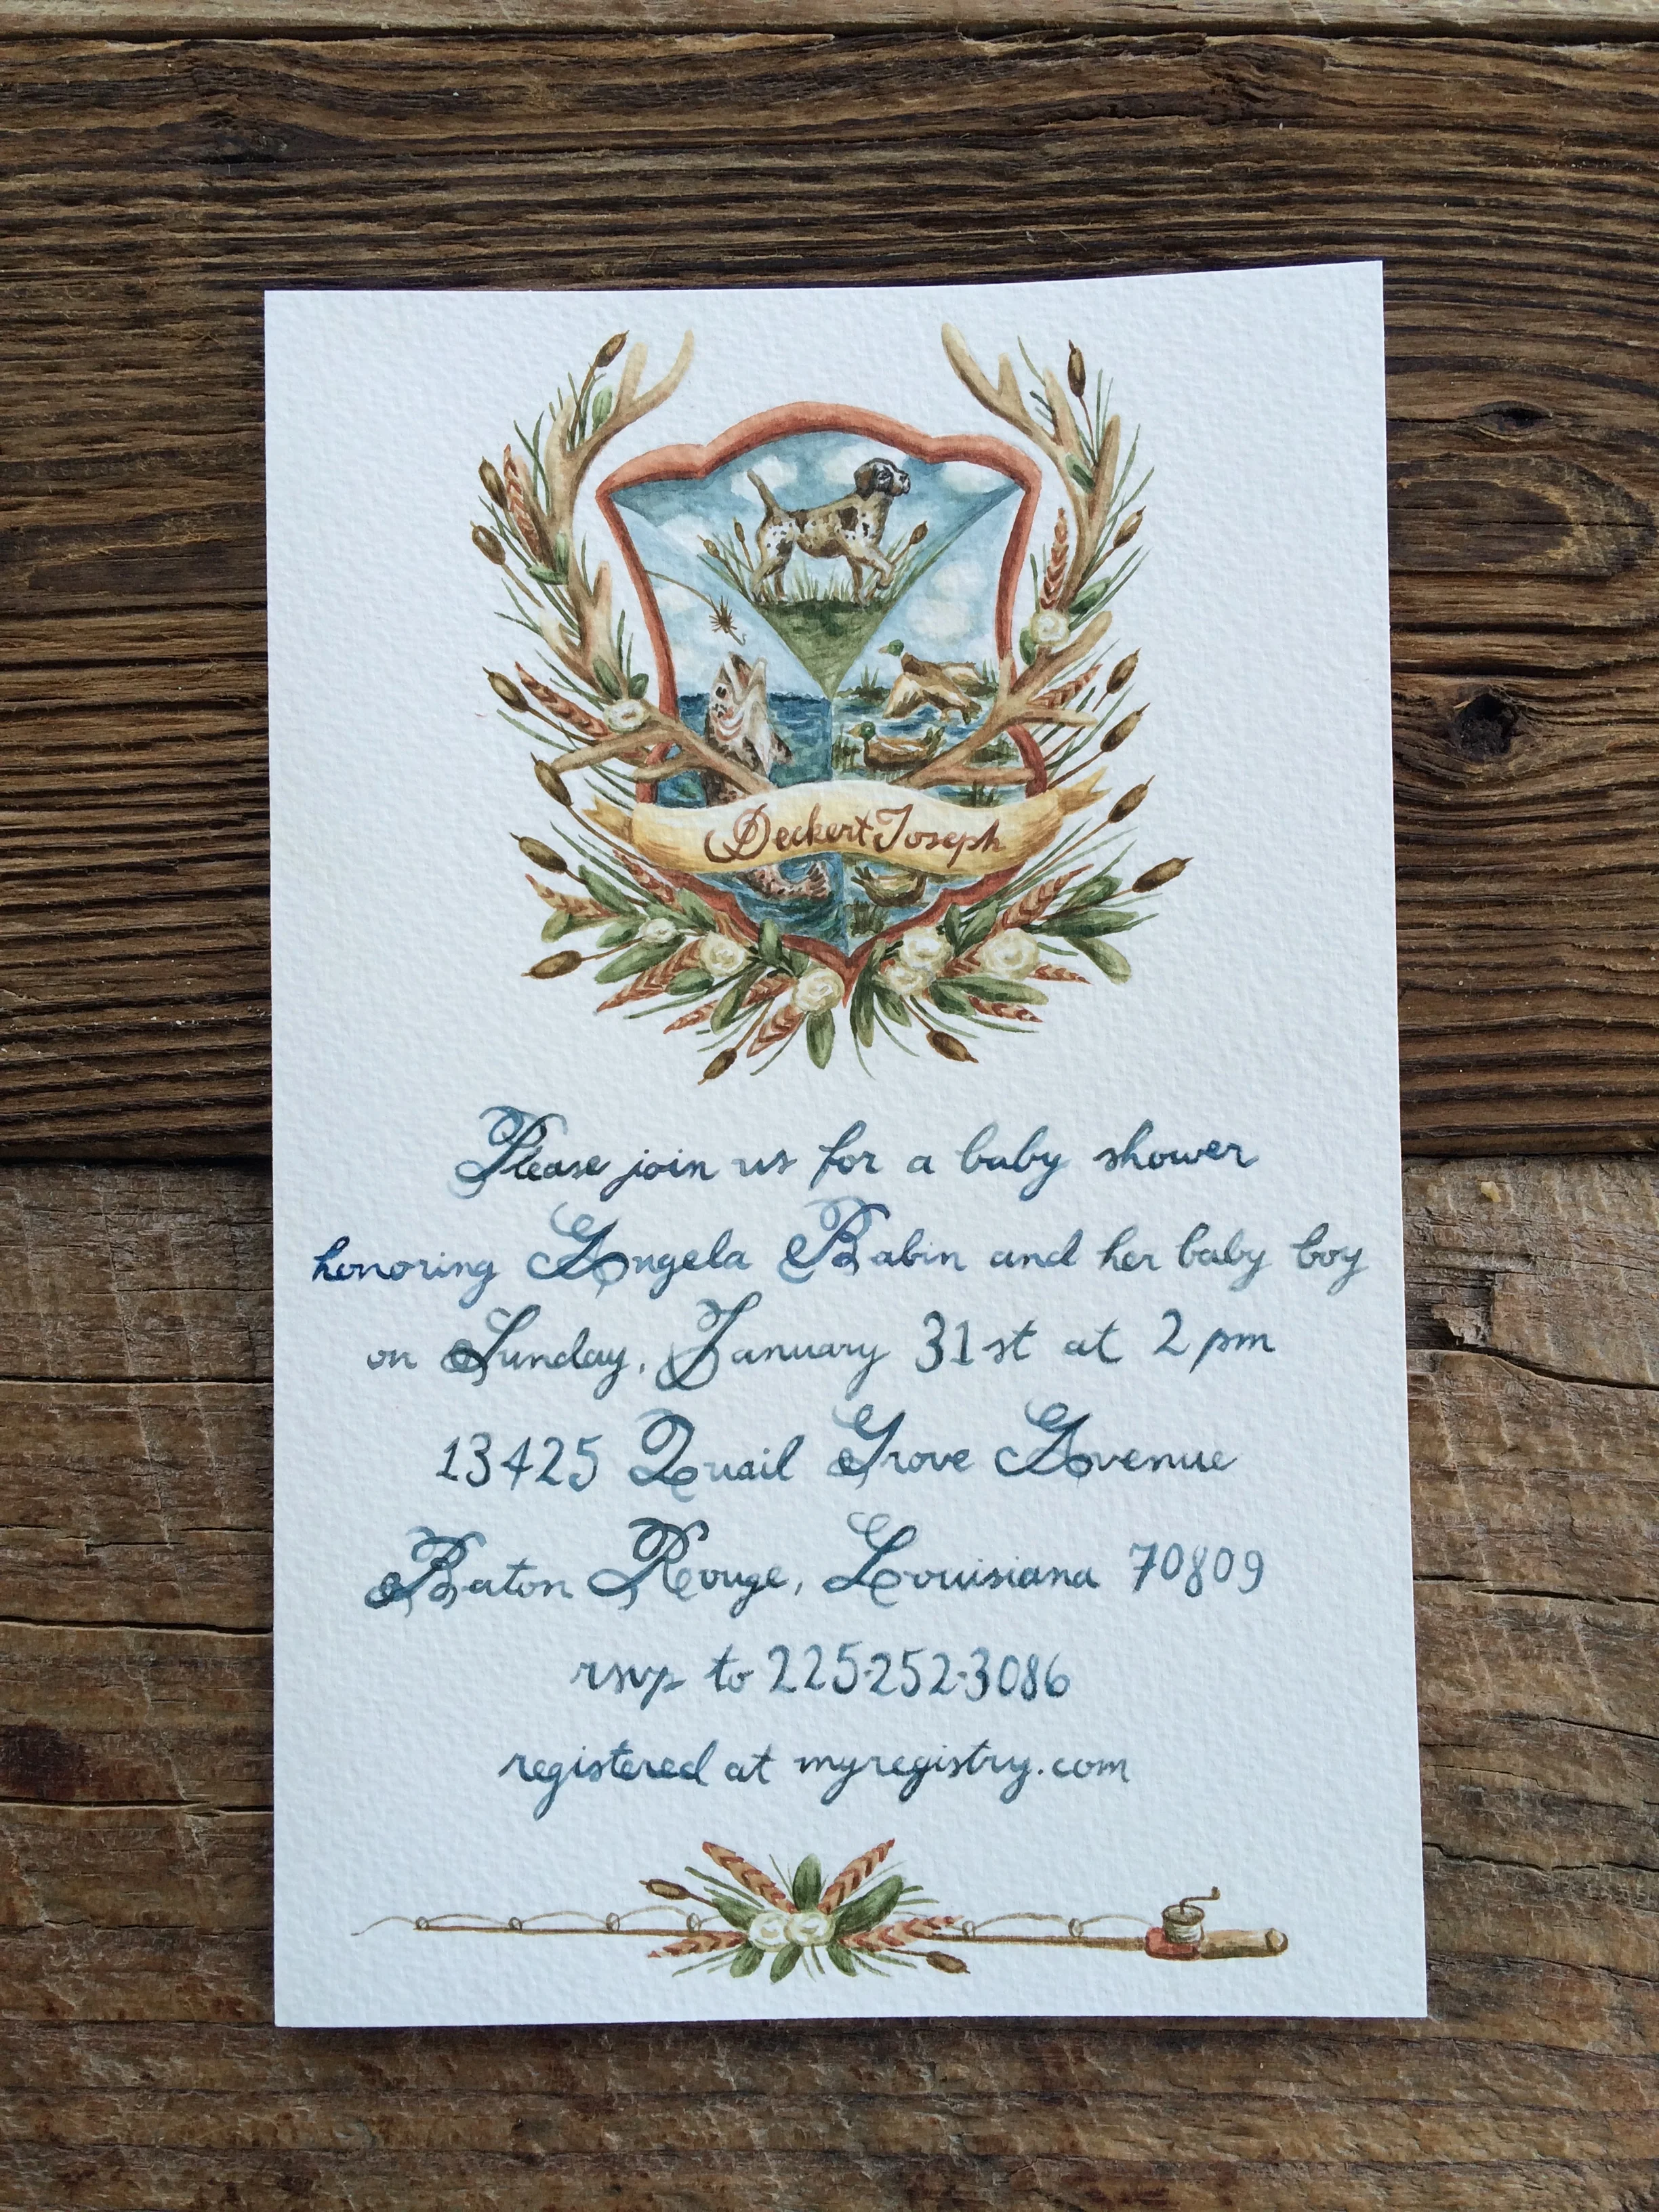 Deckert Joseph
Please join us for a baby shower
honoring Angela Babin and her baby boy
on Sunday, January 31st at 2 pm
13425 Quail Grove Avenue
Baton Rouge, Louisiana 70809
rsvp to 225-252-3086
registered at myregistry.com